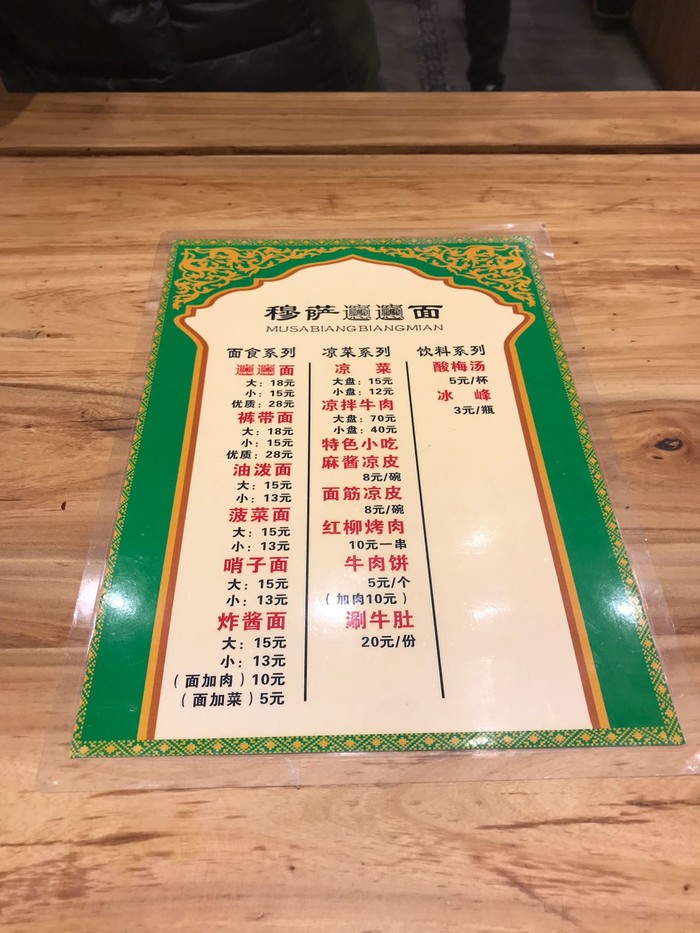 穆萨𰻞𰻞面
MUSABIANGBIANGMIAN
面食系列
𰻞𰻞面
大：18元
小：15元
优质：28元
裤带面
大：18元
小：15元
优质：28元
油泼面
大：15元
小：13元
菠菜面
大：15元
小：13元
哨子面
大：15元
小：13元
炸酱面
大：15元
小：13元
（面加肉）10元
（面加菜）5元
凉菜系列
凉 菜
大盘：15元
小盘：12元
凉拌牛肉
大盘：70元
小盘：40元
特色小吃
麻酱凉皮
8元/碗
面筋凉皮
8元/碗
红柳烤肉
10元一串
牛肉饼
5元/个
（加肉10元）
涮牛肚
20元/份
饮料系列
酸梅汤
5元/杯
冰 峰
3元/瓶